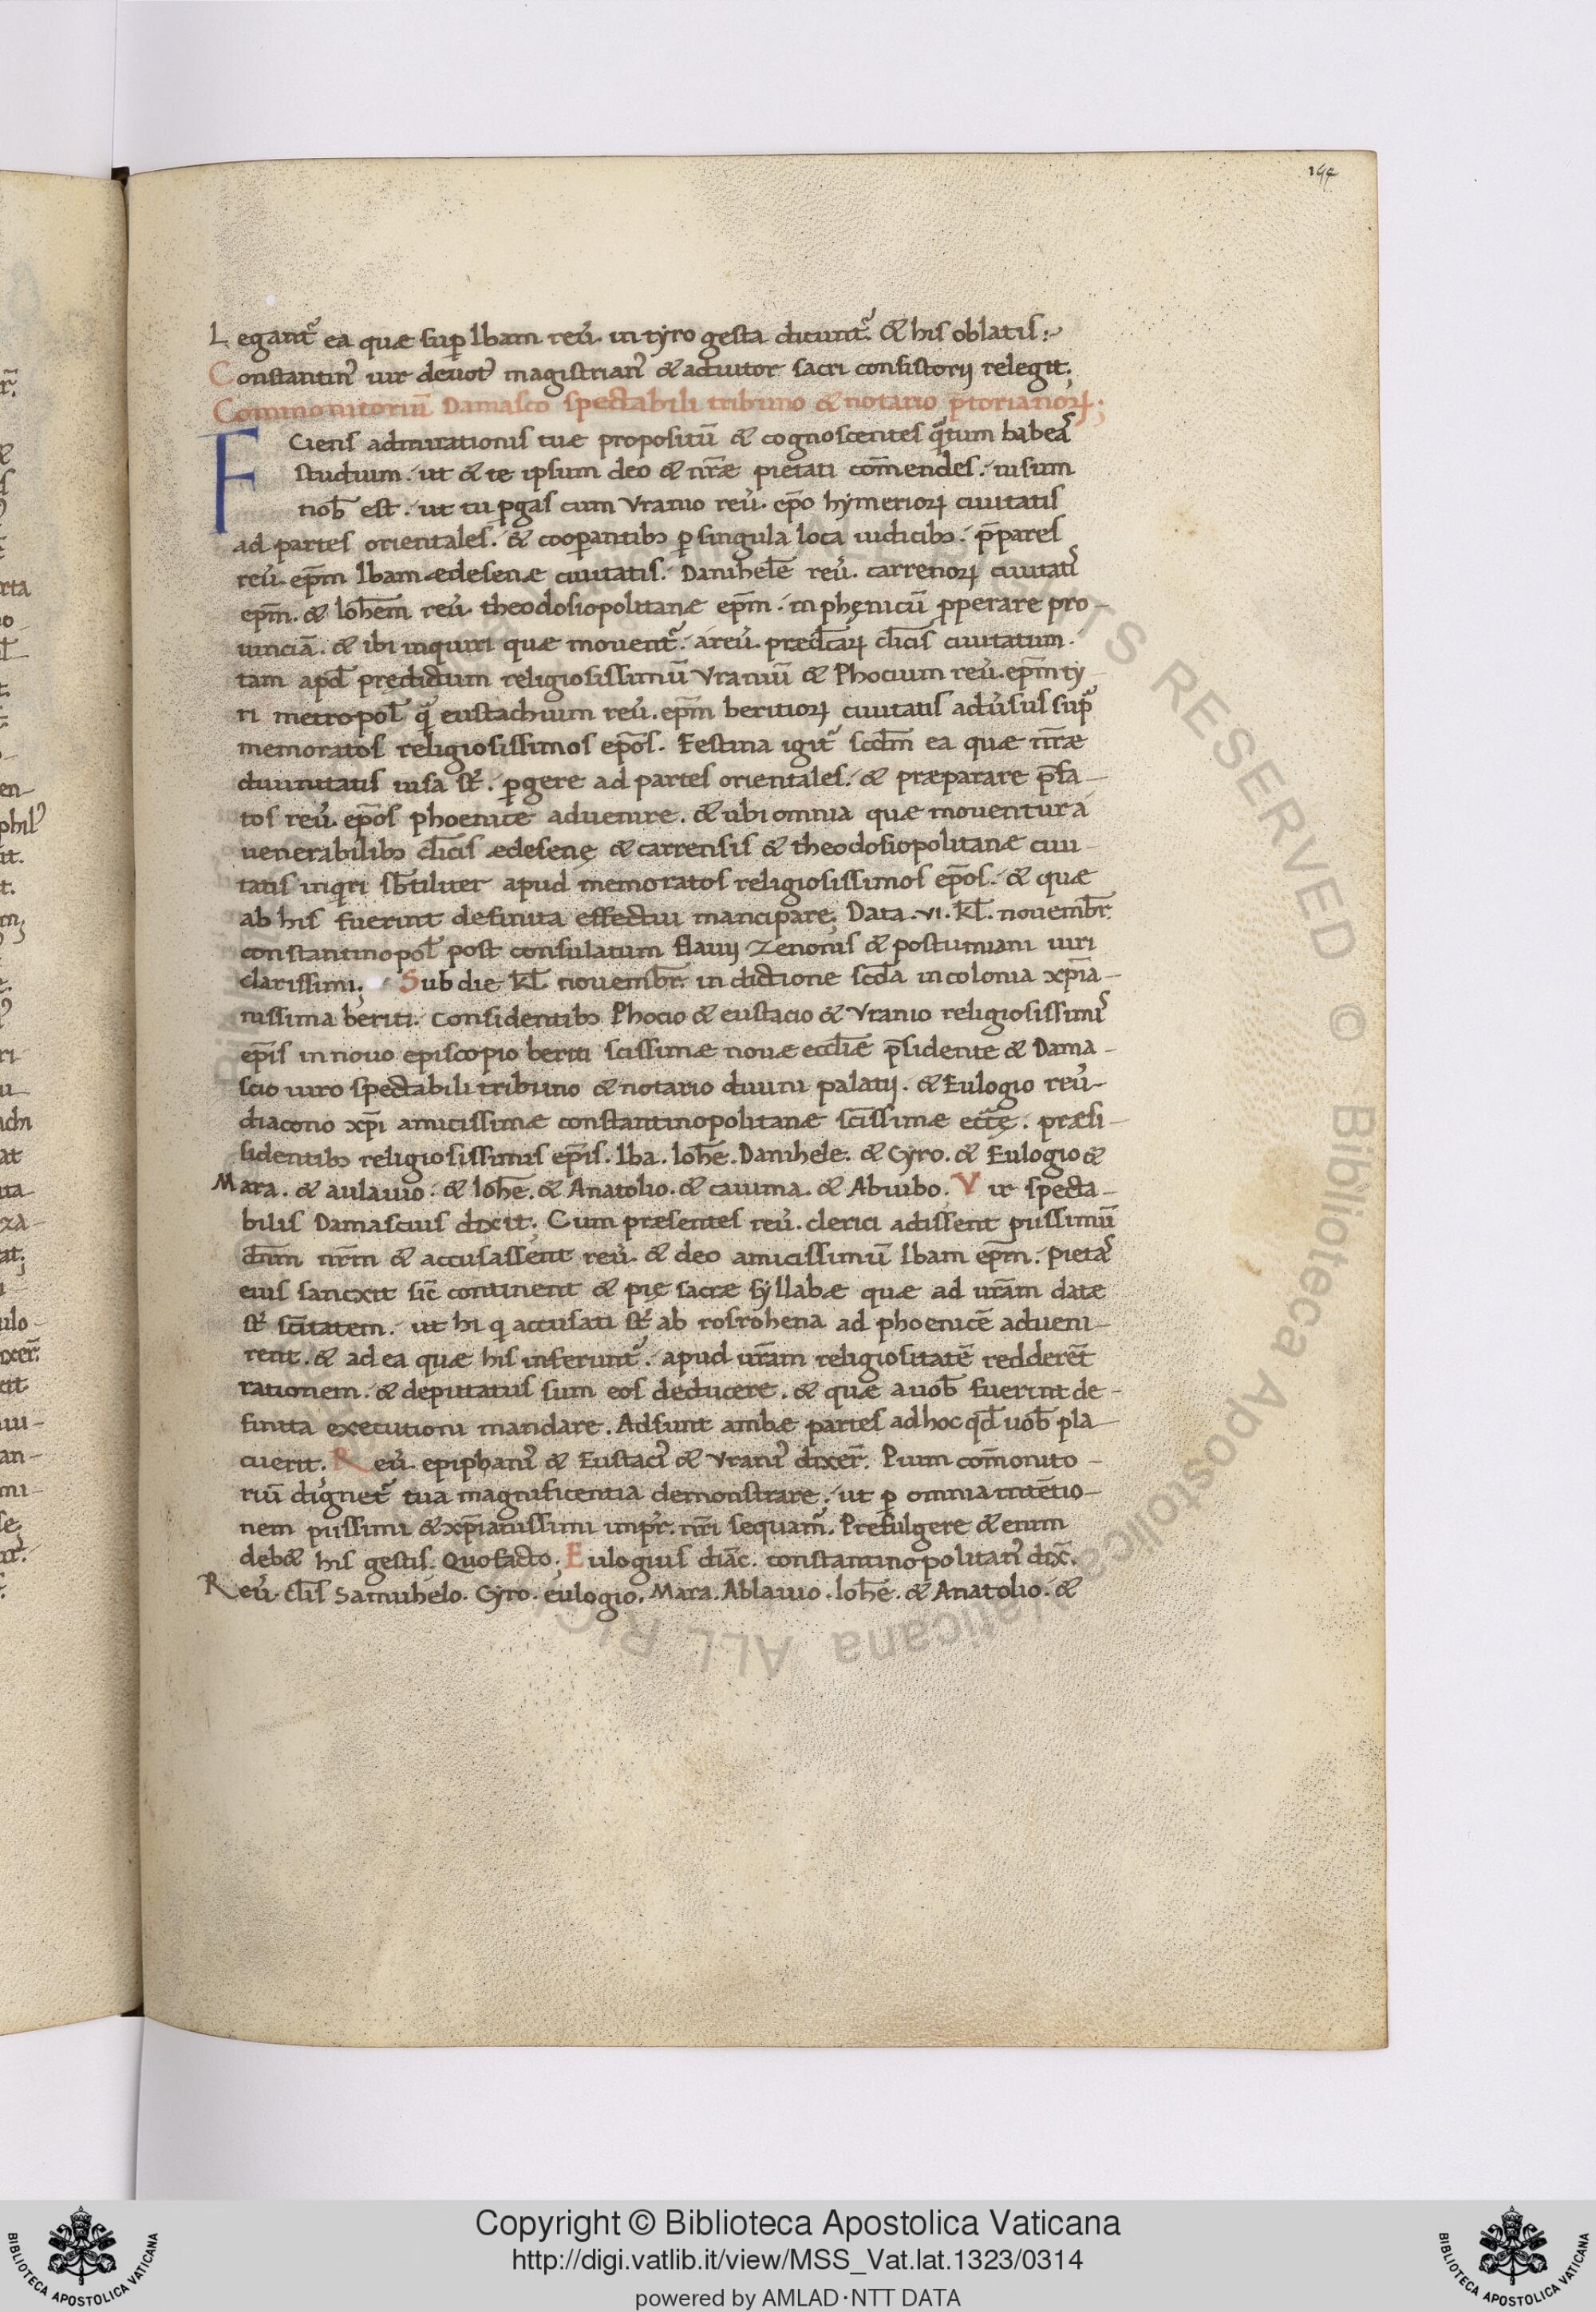 197
Legant᷑ ea quæ suꝑ Ibam reu̅. in tyro gesta dicunt᷑. & his oblatis:
Constantin᷒ uir deuot᷒ magistrian᷒ & adiutor sacri consistorij relegit.
Commonitoriū Damasco spectabili tribuno & notario p̄torianoꝝ;
F Ciens admirationis tue propositū & cognoscentes qᷓtum habeas
studium. ut & te ipsum deo & nr̄æ pietati com̄endes. uisum
nob̄ est. ut tu ꝑgas cum Vranio reu̅. ep̄o hymerioꝝ ciuitatis
ad partes orientales. & cooꝑantibꝫ ꝑ singula loca iudicibꝫ. p̄pares
reu̅. ep̄m Ibam ædesenæ ciuitatis. Danihelē reu̅. carrenoꝝ ciuitatis
ep̄m. & Ioh̄em reu̅. theodosiopolitanæ ep̄m. in phęnicū ꝓperare pro-
uinciā. & ibi inquiri quæ mouent᷑. a reu̅. prædc̄aꝝ cl̄icis ciuitatum.
tam apd̄ prędictum religiosissimū Vraniū & Phocium reu̅. ep̄m ty
ri metropol̄ qᷓ eustachium reu̅. ep̄m beritioꝝ ciuitatis adu̅sus supᷓ
memoratos religiosissimos ep̄os. Festina igit᷑ scdm̄ ea quæ nr̄æ
diuinitatis iusa st̄. ꝑgere ad partes orientales. & præparare p̄fa-
tos reu̅. ep̄os phoenice aduenire. & ubi omnia quæ mouentur a
uenerabilibꝫ cl̄icis ædesenę & carrensis & theodosiopolitanæ ciui-
tatis inqͥri sb̄tiliter apud memoratos religiosissimos ep̄os. & quæ
ab his fuerint definita effectui mancipare; Data. vi. kl̄. nouembr̄.
constantinopol̄ post consulatum flauij Zenonis & postumiani uiri
clarissimi; Sub die kl̄. nouembr̄. indictione scd̄a in colonia xp̄ia-
nissima beriti. Considentibꝫ Phocio & eustacio & Vranio religiosissimis
ep̄is in nouo episcopio beriti sc̄issimæ nouæ eccl̄iæ p̄sidente & Dama-
scio uiro spectabili tribuno & notario diuini palatij. & Eulogio reu̅.
diacono xp̄i amicissimæ constantinopolitanæ sc̄issimæ ecc̄ę. præsi-
sidentibꝫ religiosissimis ep̄is. Iba. Ioh̄e. Danihele. & Cyro. & Eulogio &
Mara. & aulauio. & Ioh̄e. & Anatolio. & caiuma. & Abiubo. Vir specta-
bilis Damascius dixit; Cum præsentes reu̅. clerici adissent piissimū
dn̄m nr̄m & accusassent reu̅. & deo amicissimū Ibam ep̄m. pietas
eius sancxit sic̄ continent & pię sacræ syllabæ quæ ad ur̄am datæ
st̄ sc̄itatem. ut hi qͥ accusati st̄ ab rosrohena ad phoenicē adueni-
rent. & ad ea quæ his inferunt᷑. apud ur̄am religiositatē redderēt
rationem. & deputatus sum eos deducere. & quæ a uob̄ fuerint de-
finita executioni mandare. Adsunt ambæ partes ad hoc qd̄ uob̄ pla-
cuerit. Reu̅. epiphani᷒ & Eustaci᷒ & Vrani᷒ dixer̄. Pium com̄onito-
riū dignet᷑ tua magnificentia demonstrare. ut ꝑ omnia intētio-
nem piissimi & xp̄ianissimi impr̄. nr̄i sequam᷑. Prefulgere & enim
deb& his gestis. Quo facto. Eulogius diāc. constantinopolitan᷒ dix̄.
Reu̅. cl̄is Samuhelo. Cyro. eulogio. Mara. Ablauio. Ioh̄e. & Anatolio. &
Copyright © Biblioteca Apostolica Vaticana
http://digi.vatlib.it/view/MSS_Vat.lat.1323/0314
powered by AMLAD·NTT DATA
BIBLIOTECA APOSTOLICA VATICANA
BIBLIOTECA APOSTOLICA VATICANA